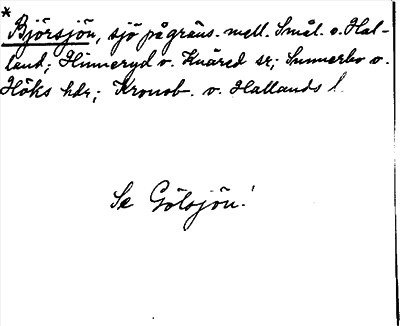 *
Björsjön, sjö på gräns. mell. Smål. o. Hal-
land; Hinneryd o. Knäred sr; Sunnerbo o.
Höks hdr; Kronob. o. Hallands l.
Se Gölsjön!